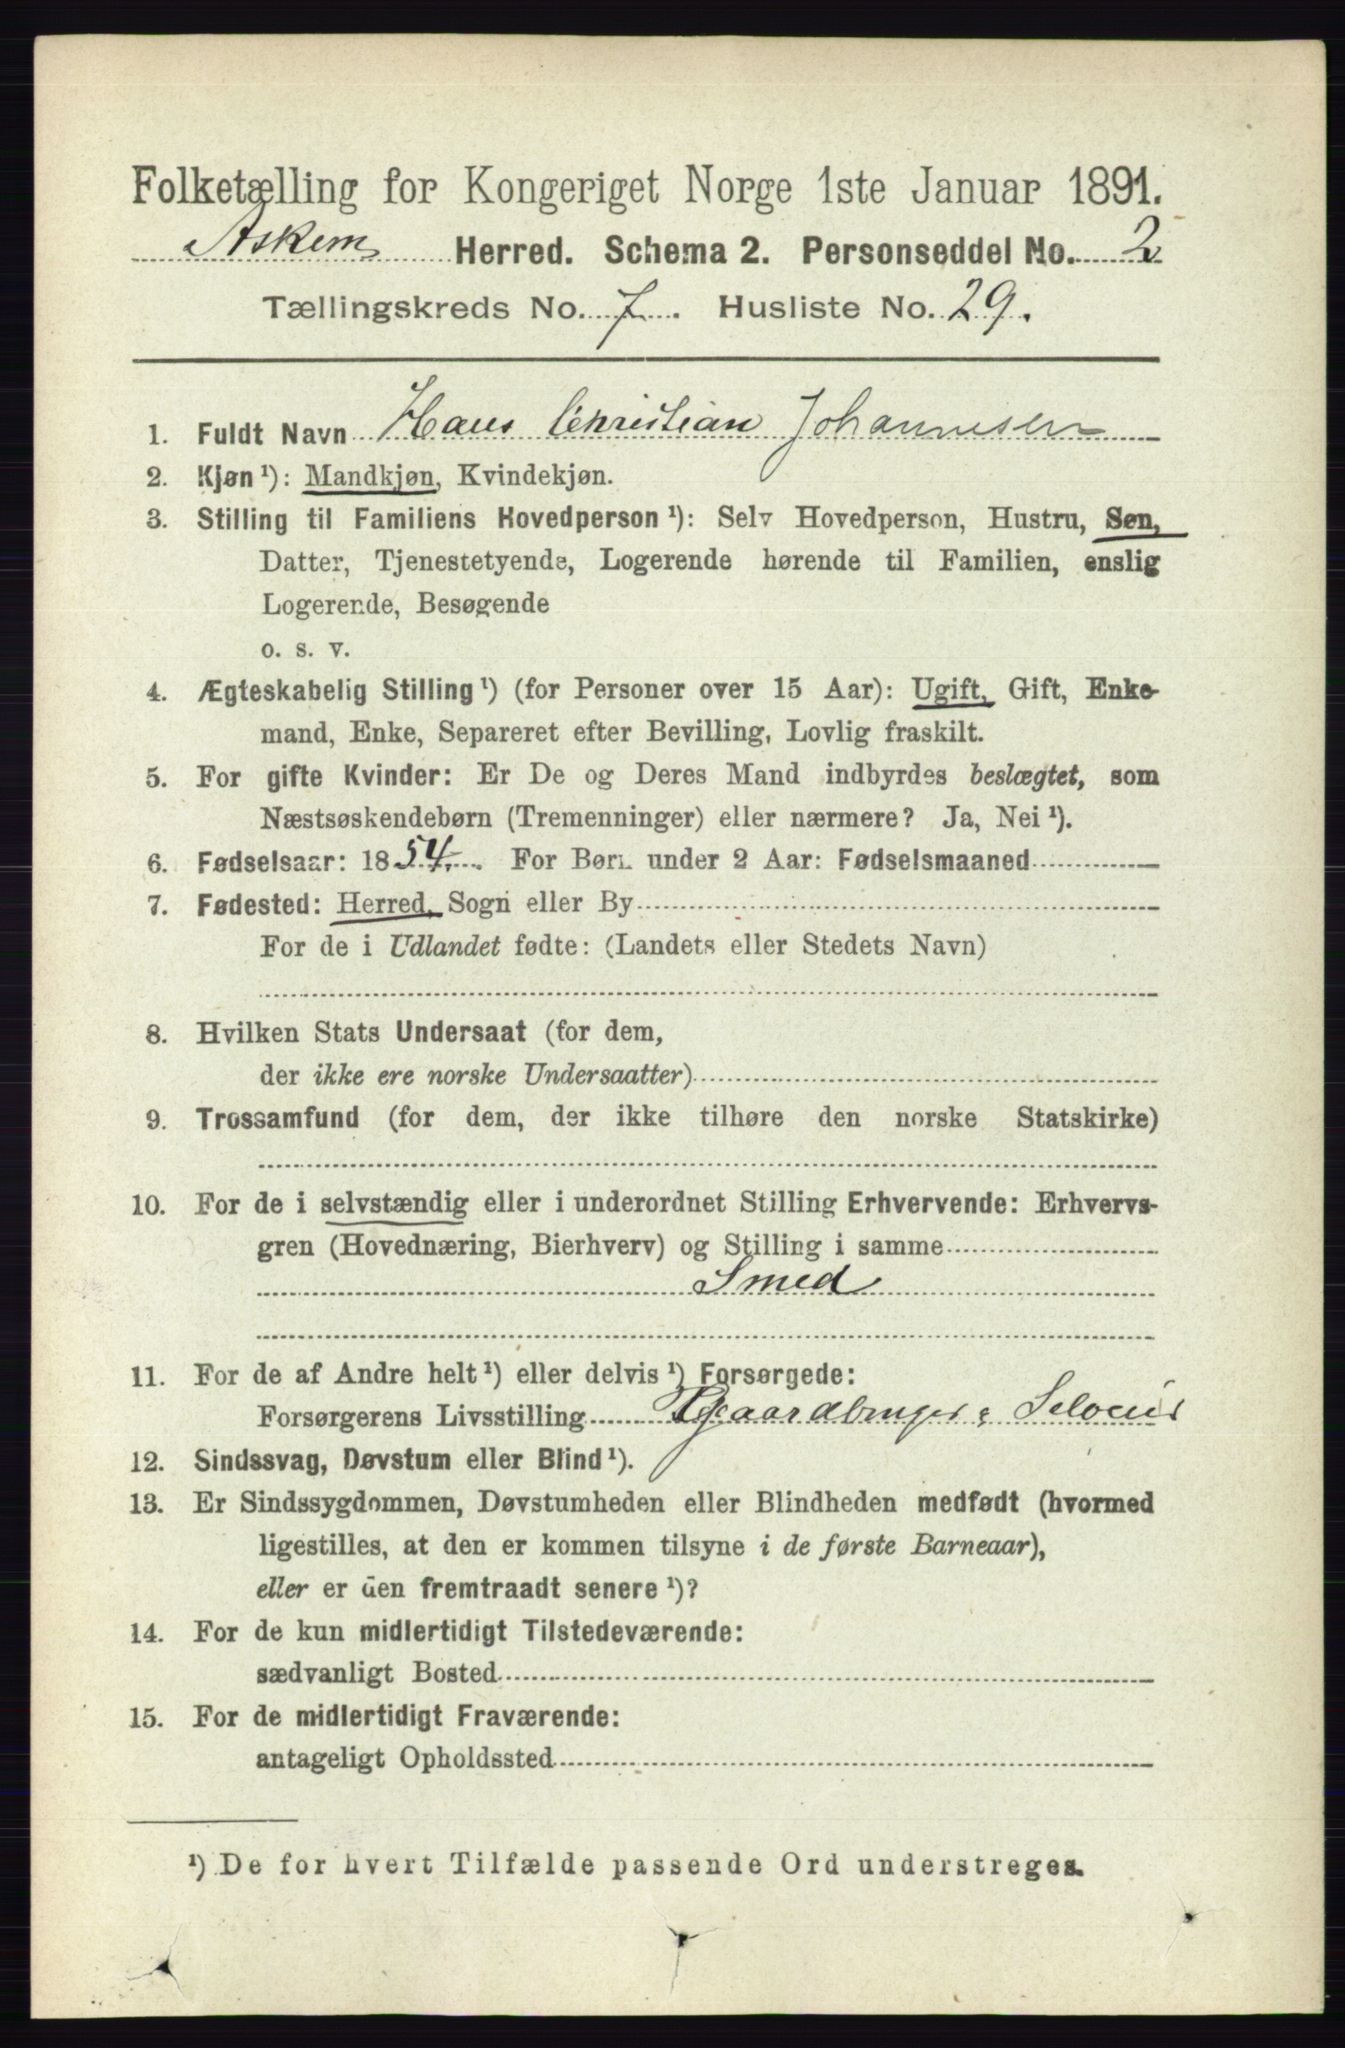 Folketælling for Kongeriget Norge 1ste Januar 1891.
Askem Herred. Schema 2. Personseddel No. 2
Tællingskreds No. 7. Husliste No. 29.
1. Fuldt Navn Hans Christian Johannesen
2. Kjøn ¹): Mandkjøn, Kvindekjøn.
3. Stilling til Familiens Hovedperson ¹): Selv Hovedperson, Hustru, Søn,
Datter, Tjenestetyende, Logerende hørende til Familien, enslig
Logerende, Besøgende
o. s. v.
4. Ægteskabelig Stilling ¹) (for Personer over 15 Aar): Ugift, Gift, Enke-
mand, Enke, Separeret efter Bevilling, Lovlig fraskilt.
5. For gifte Kvinder: Er De og Deres Mand indbyrdes beslægtet, som
Næstsøskendebørn (Tremenninger) eller nærmere? Ja, Nei ¹).
6. Fødselsaar: 1854. For Børn under 2 Aar: Fødselsmaaned
7. Fødested: Herred, Sogn eller By
For de i Udlandet fødte: (Landets eller Stedets Navn)
8. Hvilken Stats Undersaat (for dem,
der ikke ere norske Undersaatter)
9. Trossamfund (for dem, der ikke tilhøre den norske Statskirke)
10. For de i selvstændig eller i underordnet Stilling Erhvervende: Erhvervs-
gren (Hovednæring, Bierhverv) og Stilling i samme
Smed
11. For de af Andre helt ¹) eller delvis ¹) Forsørgede:
Forsørgerens Livsstilling Gaardbruger
12. Sindssvag, Døvstum eller Blind ¹).
13. Er Sindssygdommen, Døvstumheden eller Blindheden medfødt (hvormed
ligestilles, at den er kommen tilsyne i de første Barneaar),
eller er den fremtraadt senere ¹)?
14. For de kun midlertidigt Tilstedeværende:
sædvanligt Bosted
15. For de midlertidigt Fraværende:
antageligt Opholdssted
¹) De for hvert Tilfælde passende Ord understreges.